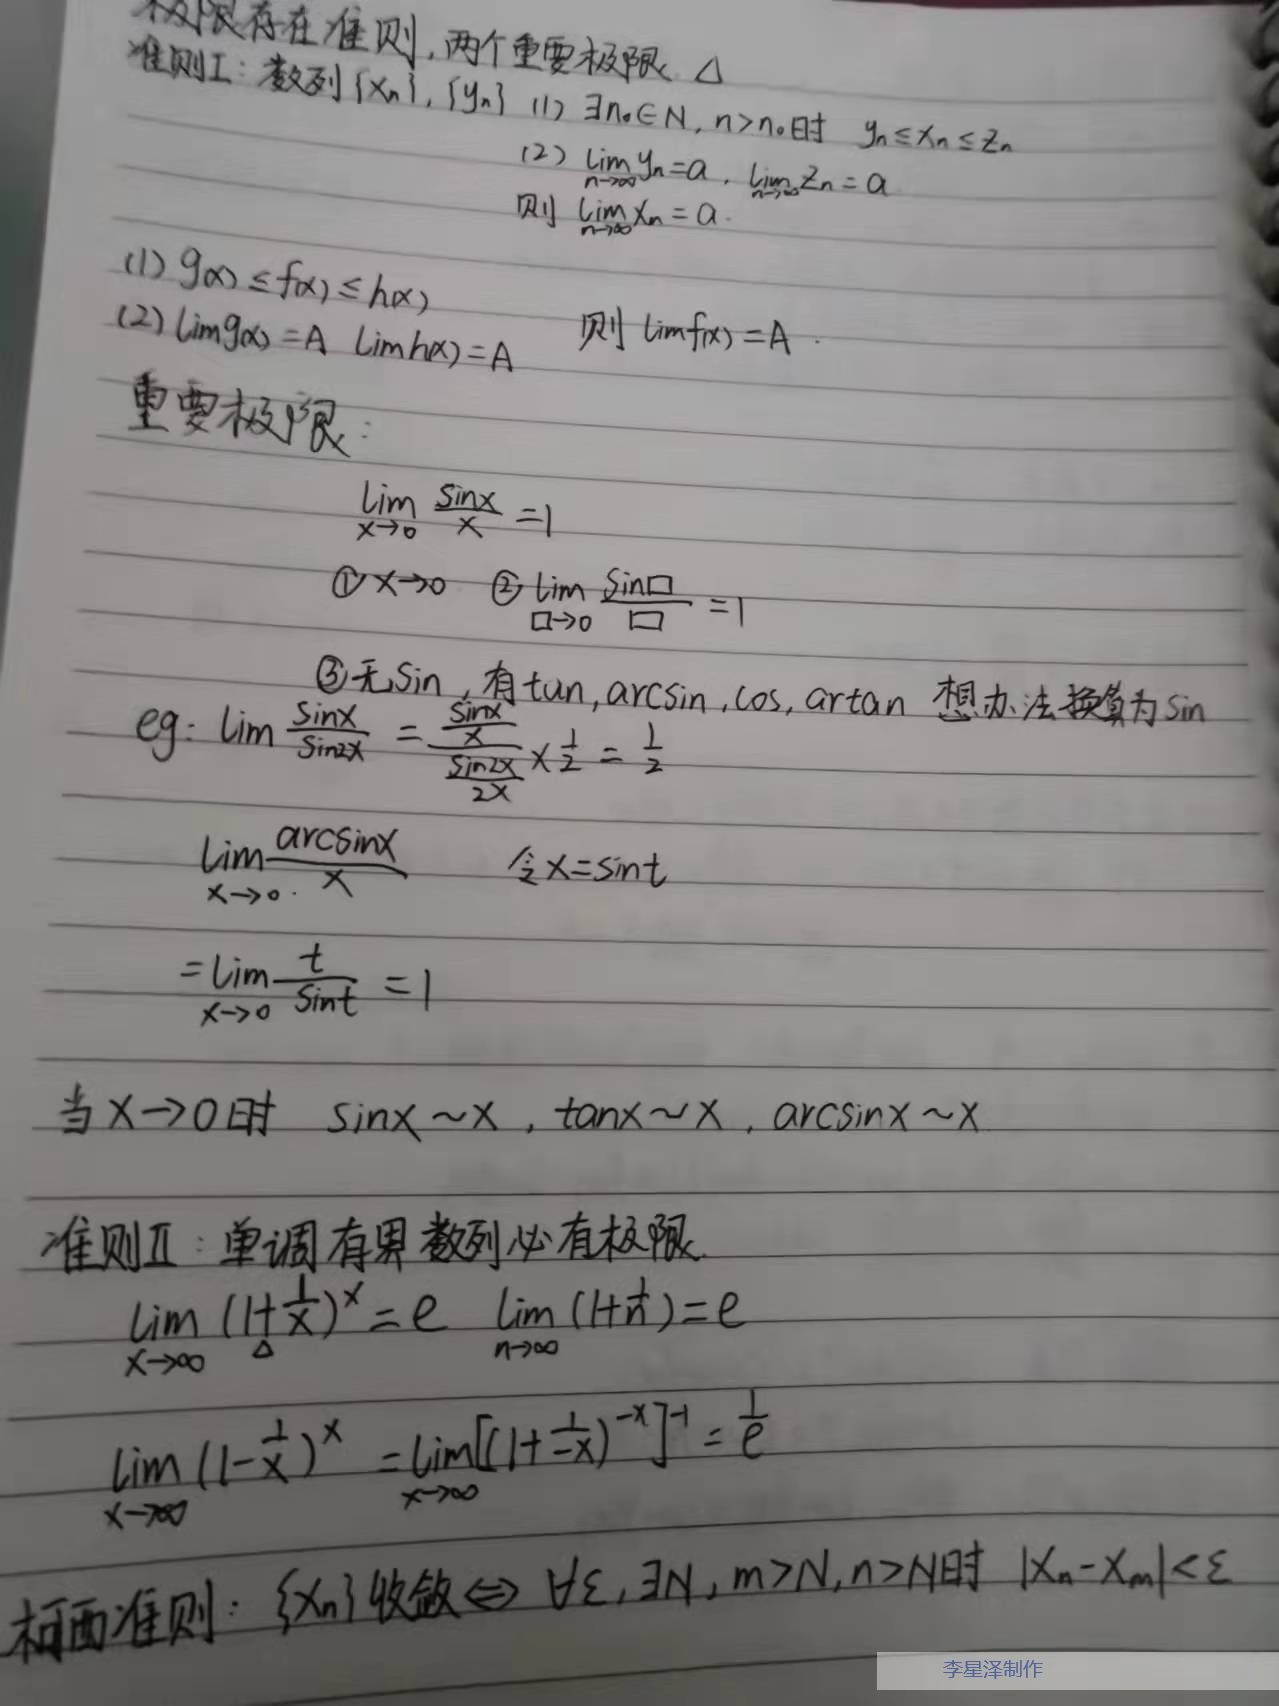 极限存在准则,两个重要极限 △
准则I:数列{xn},{yn} (1) ∃n₀∈N, n>n₀时 yn≤xn≤zn
(2) lim n→∞ yn=a. lim n→∞ zn=a
则 lim n→∞ xn=a.
(1) g(x)≤f(x)≤h(x)
(2) lim g(x)=A lim h(x)=A 则 lim f(x)=A.
重要极限:
lim x→0 sinx/x =1
① x→0 ② lim □→0 sin□/□ =1
③ 无sin,有tan,arcsin,cos,artan 想办法换算为sin
eg: lim sinx/sin2x = (sinx/x)/(sin2x/2x) × 1/2 = 1/2
lim x→0. arcsinx/x 令x=sint
= lim x→0 t/sint =1
当x→0时 sinx~x, tanx~x, arcsinx~x
准则II:单调有界数列必有极限.
lim x→∞ (1+1/x)^x = e lim n→∞ (1+1/n) = e
△
lim x→∞ (1-1/x)^x = lim x→∞ [(1+1/-x)^-x]^-1 = 1/e
柯西准则: {xn}收敛⇔ ∀ε,∃N, m>N,n>N时 |xn-xm|<ε
李星泽制作